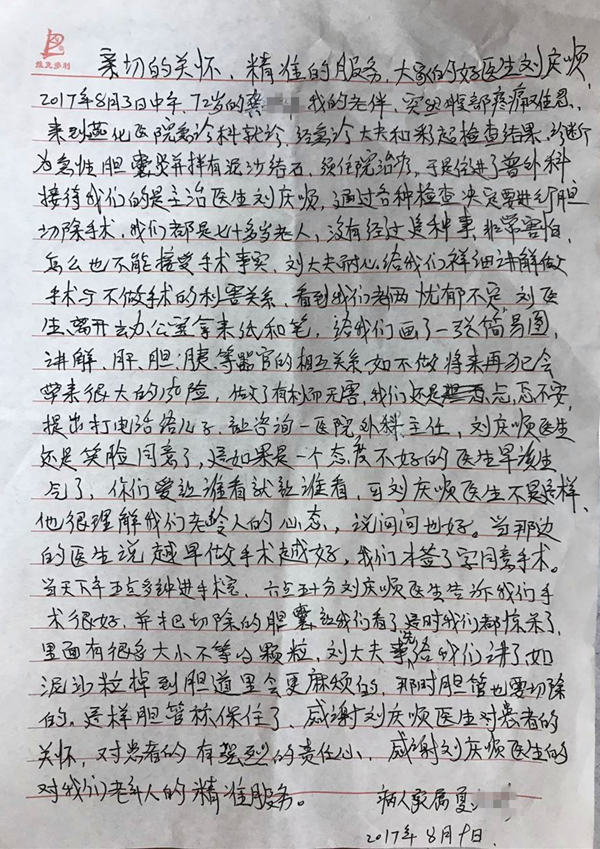 维克多利
亲切的关怀、精准的服务,大家的好医生刘庆顺
2017年8月3日中午,72岁的龚 我的老伴,突然腹部疼痛难忍,
来到燕化医院急诊科就诊,经急诊大夫和彩超检查结果,诊断
为急性胆囊炎并拌有泥沙结石,须住院治疗,于是住进了普外科
接待我们的是主治医生刘庆顺,通过各种检查决定要进行胆
切除手术,我们都是七十多岁老人,没有经过这种事,非常害怕,
怎么也不能接受手术事实,刘大夫耐心给我们祥细讲解做
手术与不做手术的利害关系,看到我们老两忧郁不定,刘医
生离开去办公室拿来纸和笔,给我们画了一张简易图,
讲解、肝、胆、胰等器官的相互关系如不做将来再犯会
带来很大的危险,做了有利而无害,我们还是忐忑不安,
提出打电话给儿子,让咨询一医院外科主任,刘庆顺医生
还是笑脸同意了,这如果是一个态度不好的医生早该生
气了,你们爱让谁看就让谁看,可刘庆顺医生不是这样,
他很理解我们老龄人的心态,说问问也好。当那边
的医生说越早做手术越好,我们才签了字同意手术。
当天下午五点多钟进手术室,六点五十分刘庆顺医生告诉我们手
术很好,并把切除的胆囊让我们看了,是时我们都惊呆了,
里面有很多大小不等的颗粒,刘大夫事先给我们讲了如
泥沙粒掉到胆道里会更麻烦的,那时胆管也要切除
的,这样胆管就保住了、感谢刘庆顺医生对患者的
关怀,对患者的有强烈的责任心,感谢刘庆顺医生的
对我们老年人的精准服务。 病人家属夏
2017年8月9日.